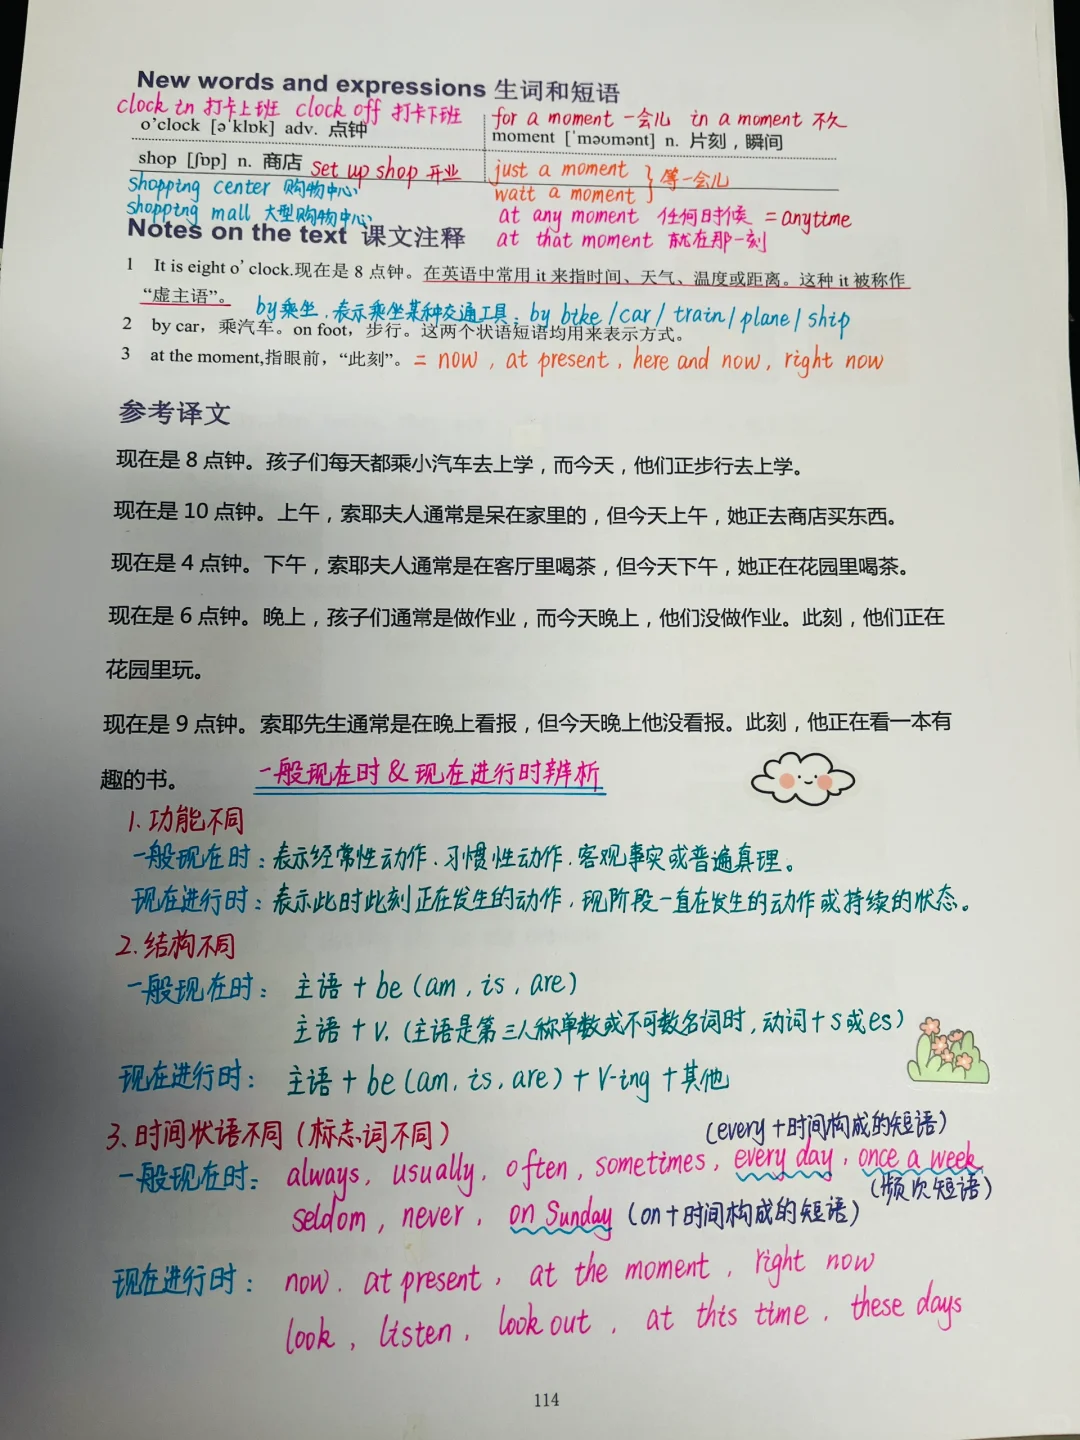 New words and expressions 生词和短语
clock in 打卡上班 clock off 打卡下班
for a moment 一会儿 in a moment 不久
o'clock [ə'klɒk] adv. 点钟
moment ['məʊmənt] n. 片刻，瞬间
shop [ʃɒp] n. 商店 set up shop 开业
just a moment
wait a moment } 等一会儿
shopping center 购物中心
shopping mall 大型购物中心
at any moment 任何时候 = anytime
at that moment 就在那一刻
Notes on the text 课文注释
1 It is eight o' clock.现在是 8 点钟。在英语中常用 it 来指时间、天气、温度或距离。这种 it 被称作
“虚主语”。
by乘坐，表示乘坐某种交通工具：by bike / car / train / plane / ship
2 by car，乘汽车。on foot，步行。这两个状语短语均用来表示方式。
3 at the moment,指眼前，“此刻”。= now , at present , here and now , right now
参考译文
现在是 8 点钟。孩子们每天都乘小汽车去上学，而今天，他们正步行去上学。
现在是 10 点钟。上午，索耶夫人通常是呆在家里的，但今天上午，她正去商店买东西。
现在是 4 点钟。下午，索耶夫人通常是在客厅里喝茶，但今天下午，她正在花园里喝茶。
现在是 6 点钟。晚上，孩子们通常是做作业，而今天晚上，他们没做作业。此刻，他们正在
花园里玩。
现在是 9 点钟。索耶先生通常是在晚上看报，但今天晚上他没看报。此刻，他正在看一本有
趣的书。
一般现在时 & 现在进行时辨析
1. 功能不同
一般现在时：表示经常性动作、习惯性动作、客观事实或普遍真理。
现在进行时：表示此时此刻正在发生的动作，现阶段一直在发生的动作或持续的状态。
2. 结构不同
一般现在时： 主语 + be (am , is , are)
主语 + v. (主语是第三人称单数或不可数名词时，动词+s或es)
现在进行时： 主语 + be (am, is, are) + V-ing + 其他
3. 时间状语不同（标志词不同）
(every +时间构成的短语)
一般现在时： always , usually , often , sometimes , every day , once a week
(频次短语)
seldom , never , on Sunday (on +时间构成的短语)
现在进行时： now , at present , at the moment , right now
look , listen , look out , at this time , these days
114